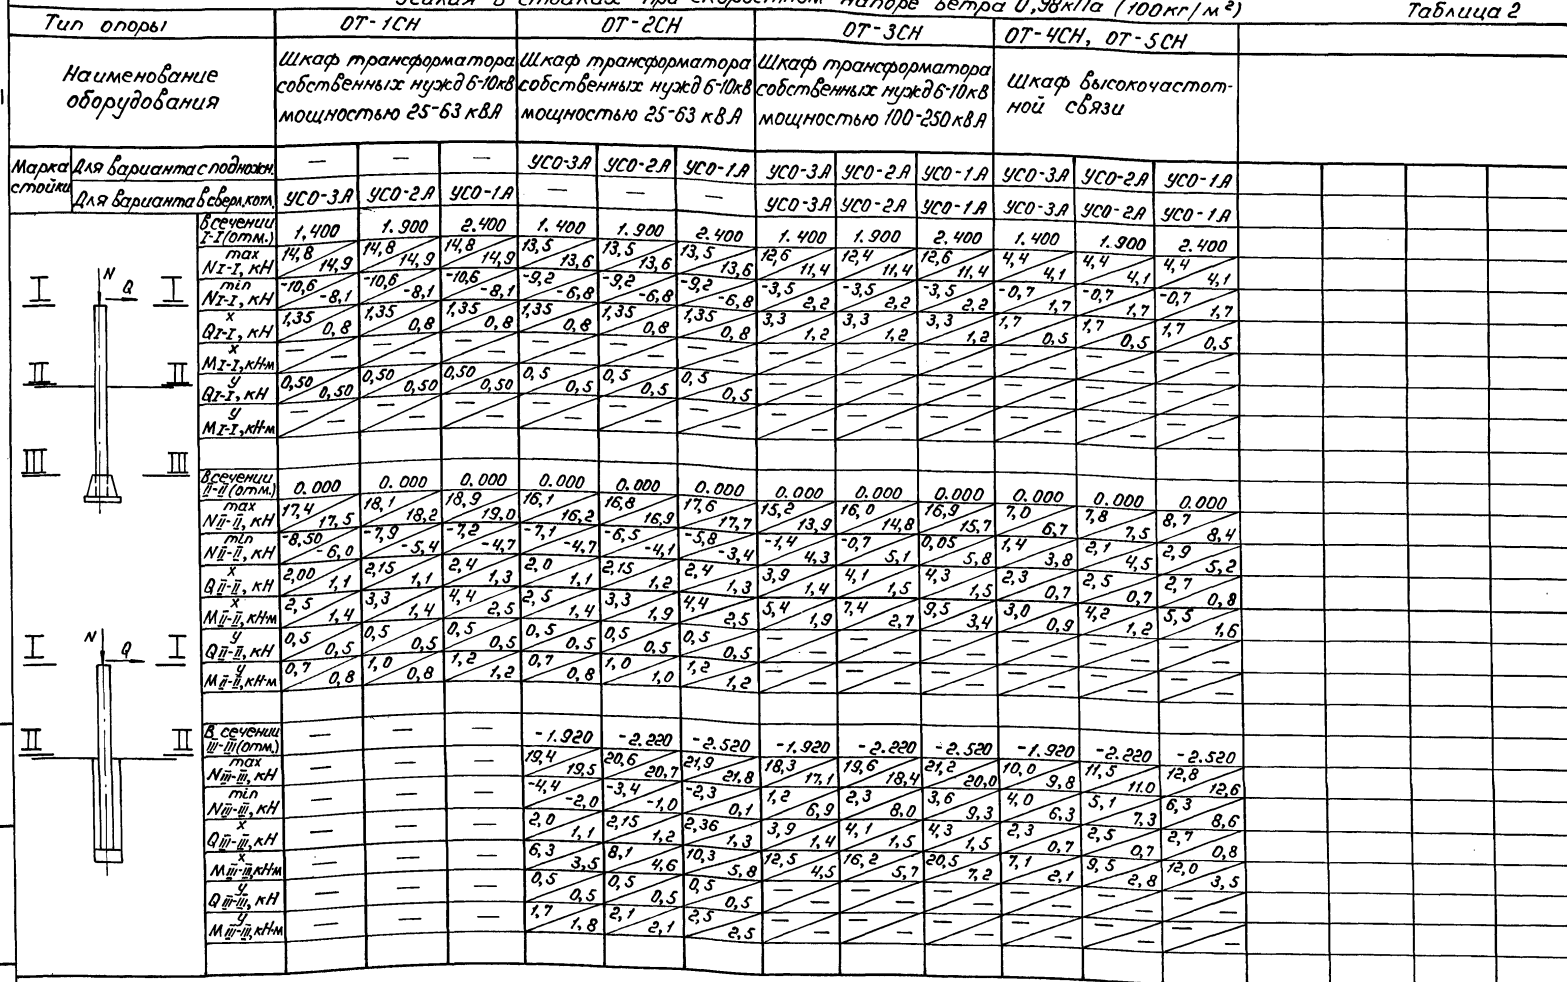 Усилия в стойках при скоростном напоре ветра 0,98кПа (100кг/м²)
Таблица 2
Тип опоры ОТ-1СН ОТ-2СН ОТ-3СН ОТ-4СН, ОТ-5СН
Наименование оборудования
Шкаф трансформатора собственных нужд 6-10кВ мощностью 25-63 кВА
Шкаф трансформатора собственных нужд 6-10кВ мощностью 25-63 кВА
Шкаф трансформатора собственных нужд 6-10кВ мощностью 100-250кВА
Шкаф высокочастотной связи
Марка стойки
Для варианта с подножн. — — — УСО-3А УСО-2А УСО-1А УСО-3А УСО-2А УСО-1А УСО-3А УСО-2А УСО-1А
Для варианта в сверл.котл. УСО-3А УСО-2А УСО-1А — — — УСО-3А УСО-2А УСО-1А УСО-3А УСО-2А УСО-1А
В сечении I-I (отм.) 1,400 1.900 2.400 1.400 1.900 2.400 1.400 1.900 2.400 1.400 1.900 2.400
max N I-I, кН 14,8/14,9 14,8/14,9 14,8/14,9 13,5/13,6 13,5/13,6 13,5/13,6 12,6/11,4 12,4/11,4 12,6/11,4 4,4/4,1 4,4/4,1 4,4/4,1
min N I-I, кН -10,6/-8,1 -10,6/-8,1 -10,6/-8,1 -9,2/-6,8 -9,2/-6,8 -9,2/-6,8 -3,5/2,2 -3,5/2,2 -3,5/2,2 -0,7/1,7 -0,7/1,7 -0,7/1,7
x Q I-I, кН 1,35/0,8 1,35/0,8 1,35/0,8 1,35/0,8 1,35/0,8 1,35/0,8 3,3/1,2 3,3/1,2 3,3/1,2 1,7/0,5 1,7/0,5 1,7/0,5
x M I-I, кН·м —/— —/— —/— —/— —/— —/— —/— —/— —/— —/— —/— —/—
y Q I-I, кН 0,50/0,50 0,50/0,50 0,50/0,50 0,5/0,5 0,5/0,5 0,5/0,5 —/— —/— —/— —/— —/— —/—
y M I-I, кН·м —/— —/— —/— —/— —/— —/— —/— —/— —/— —/— —/— —/—
В сечении II-II (отм.) 0.000 0.000 0.000 0.000 0.000 0.000 0.000 0.000 0.000 0.000 0.000 0.000
max N II-II, кН 17,4/17,5 18,1/18,2 18,9/19,0 16,1/16,2 16,8/16,9 17,6/17,7 15,2/13,9 16,0/14,8 16,9/15,7 7,0/6,7 7,8/7,5 8,7/8,4
min N II-II, кН -8,50/-6,0 -7,9/-5,4 -7,2/-4,7 -7,1/-4,7 -6,5/-4,1 -5,8/-3,4 -1,4/4,3 -0,7/5,1 0,05/5,8 1,4/3,8 2,1/4,5 2,9/5,2
x Q II-II, кН 2,00/1,1 2,15/1,1 2,4/1,3 2,0/1,1 2,15/1,2 2,4/1,3 3,9/1,4 4,1/1,5 4,3/1,5 2,3/0,7 2,5/0,7 2,7/0,8
x M II-II, кН·м 2,5/1,4 3,3/1,4 4,4/2,5 2,5/1,4 3,3/1,9 4,4/2,5 5,4/1,9 7,4/2,7 9,5/3,4 3,0/0,9 4,2/1,2 5,5/1,6
y Q II-II, кН 0,5/0,5 0,5/0,5 0,5/0,5 0,5/0,5 0,5/0,5 0,5/0,5 —/— —/— —/— —/— —/— —/—
y M II-II, кН·м 0,7/0,8 1,0/0,8 1,2/1,2 0,7/0,8 1,0/1,0 1,2/1,2 —/— —/— —/— —/— —/— —/—
В сечении III-III (отм.) — — — -1.920 -2.220 -2.520 -1.920 -2.220 -2.520 -1.920 -2.220 -2.520
max N III-III, кН — — — 19,4/19,5 20,6/20,7 21,9/21,8 18,3/17,1 19,6/18,4 21,2/20,0 10,0/9,8 11,5/11.0 12,8/12,6
min N III-III, кН — — — -4,4/-2,0 -3,4/-1,0 -2,3/0,1 1,2/6,9 2,3/8,0 3,6/9,3 4,0/6,3 5,1/7,3 6,3/8,6
x Q III-III, кН — — — 2,0/1,1 2,15/1,2 2,36/1,3 3,9/1,4 4,1/1,5 4,3/1,5 2,3/0,7 2,5/0,7 2,7/0,8
x M III-III, кН·м — — — 6,3/3,5 8,1/4,6 10,3/5,8 12,5/4,5 16,2/5,7 20,5/7,2 7,1/2,1 9,5/2,8 12,0/3,5
y Q III-III, кН — — — 0,5/0,5 0,5/0,5 0,5/0,5 —/— —/— —/— —/— —/— —/—
y M III-III, кН·м — — — 1,7/1,8 2,1/2,1 2,5/2,5 —/— —/— —/— —/— —/— —/—
N Q
I I
II II
III III
N Q
I I
II II